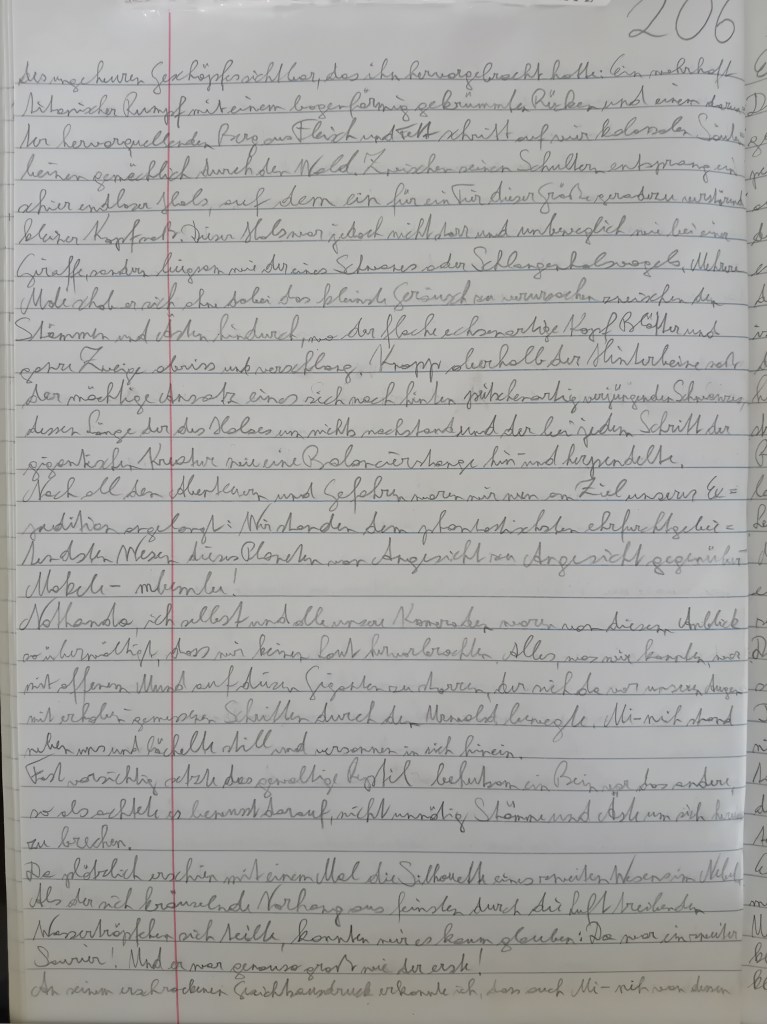 206
des ungeheuren Geschöpfes sichtbar, das ihn hervorgebracht hatte: Ein wahrhaft
titanischer Rumpf mit einem bogenförmig gekrümmten Rücken und einem darun-
ter hervorquellenden Berg aus Fleisch und Fett schritt auf vier kolossalen Säulen-
beinen gemächlich durch den Wald. Zwischen seinen Schultern entsprang ein
schier endloser Hals, auf dem ein für ein Tier dieser Größe geradezu
kleiner Kopf saß. Dieser Hals war jedoch nicht starr und unbeweglich wie bei einer
Giraffe, sondern biegsam wie der eines Schwanes oder Schlangenhalsvogels. Mehrere
Male schob er sich ohne dabei das kleinste Geräusch zu verursachen zwischen den
Stämmen und Ästen hindurch, wo der flache echsenartige Kopf Blätter und
ganze Zweige abriss und verschlang. Knapp oberhalb der Hinterbeine saß
der mächtige Ansatz eines sich nach hinten peitschenartig verjüngenden Schwanzes,
dessen Länge der des Halses um nichts nachstand und der bei jedem Schritt der
gigantischen Kreatur wie eine Balancierstange hin- und herpendelte.
Nach all den Abenteuern und Gefahren waren wir nun am Ziel unserer Ex=
pedition angelangt: Wir standen dem phantastischsten ehrfurchtgebie=
tendsten Wesen dieses Planeten von Angesicht zu Angesicht gegenüber-
Mokele-mbembe!
Nothando, ich selbst und alle unsere Kameraden waren von diesem Anblick
so überwältigt, dass wir keinen Laut hervorbrachten. Alles, was wir konnten, war
mit offenem Mund auf diesen Giganten zu starren, der sich da vor unseren Augen
mit erhaben gemessenen Schritten durch den Urwald bewegte. Mi-nih stand
neben uns und lächelte still und versonnen in sich hinein.
Fast vorsichtig setzte das gewaltige Reptil behutsam ein Bein vor das andere,
so als achtete es bewusst darauf, nicht unnötig Stämme und Äste um sich herum
zu brechen.
Da plötzlich erschien mit einem Mal die Silhouette eines zweiten Wesens im Nebel.
Als der sich kräuselnde Vorhang aus feinsten durch die Luft treibenden
Wassertröpfchen sich teilte, konnten wir es kaum glauben: Da war ein zweiter
Saurier! Und er war genauso groß wie der erste!
An seinem erschrockenen Gesichtsausdruck erkannte ich, dass auch Mi-nih von dessen